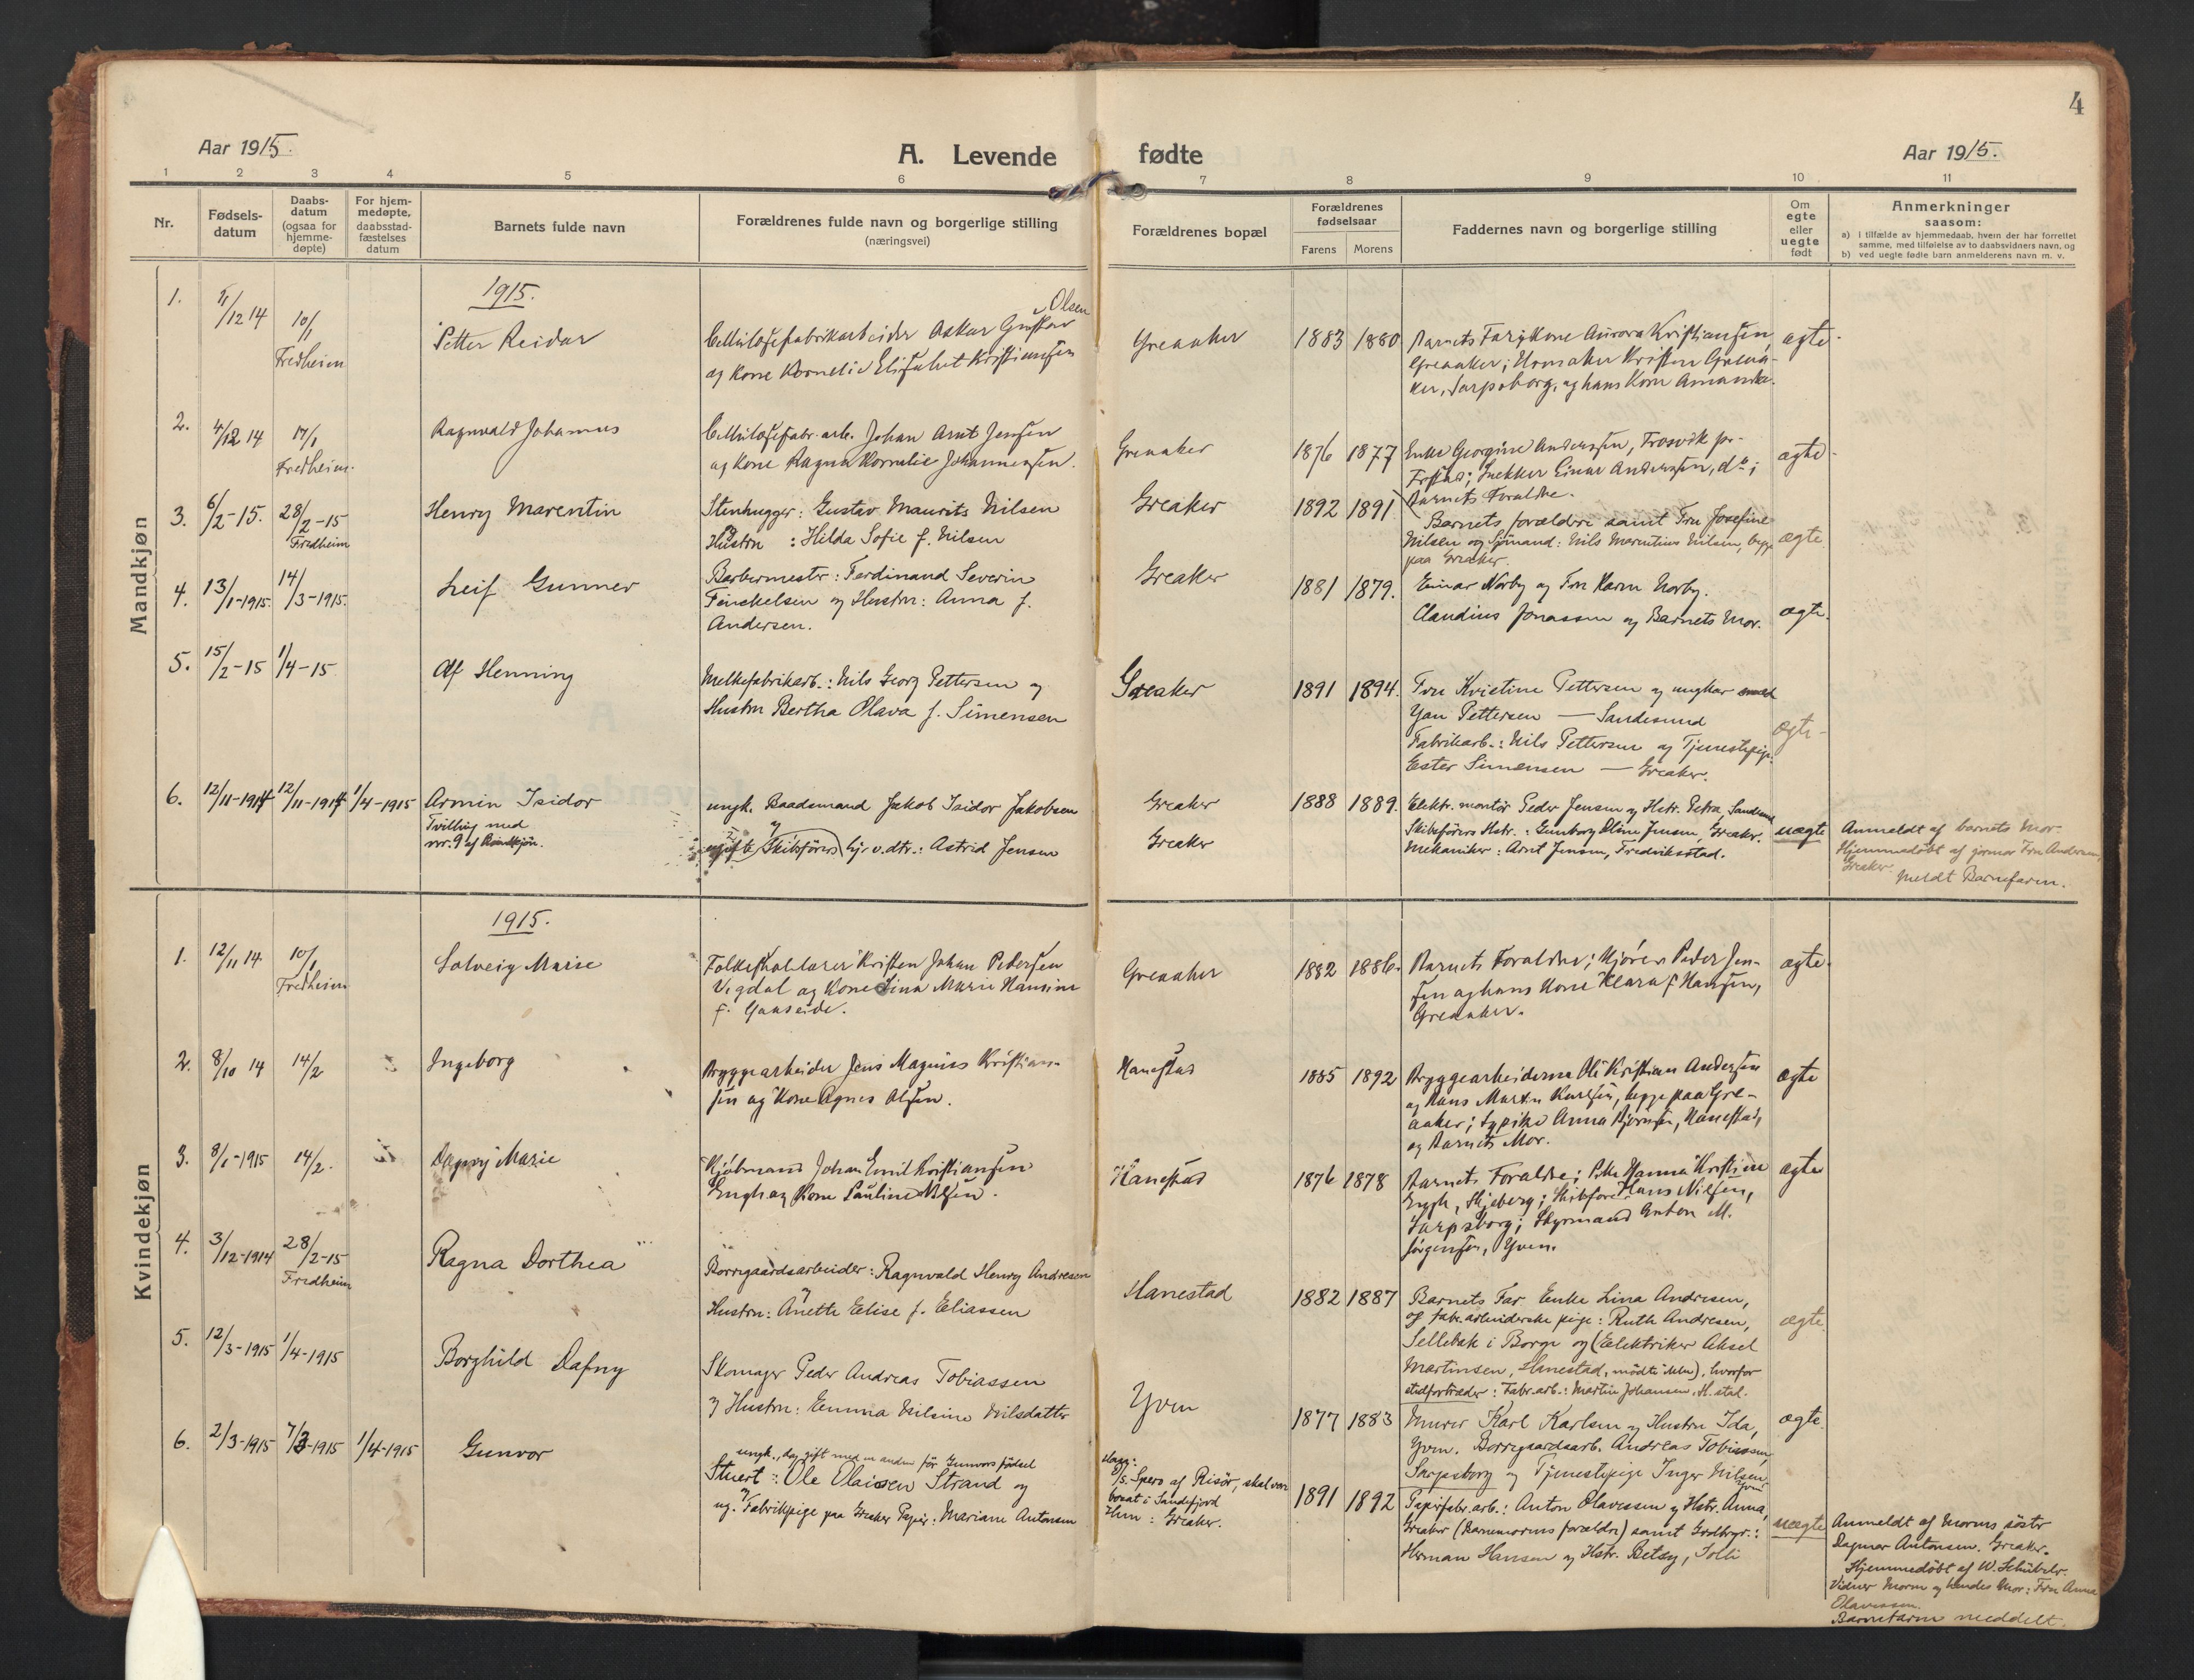 4
Aar 1915.
A. Levende fødte
Aar 1915.
1 2 3 4 5 6 7 8 9 10 11
Nr.
Fødsels-
datum
Daabs-
datum
(ogsaa for
hjemme-
døpte)
For hjem-
medøpte,
daabsstad-
fæstelses
datum
Barnets fulde navn
Forældrenes fulde navn og borgerlige stilling
(næringsvei)
Forældrenes bopæl
Forældrenes
fødselsaar
Farens Morens
Faddernes navn og borgerlige stilling
Om
egte
eller
uegte
født
Anmerkninger
saasom:
a) i tilfælde av hjemmedaab, hvem der har forrettet
samme, med tilføielse av to daabsvidners navn, og
b) ved uegte fødte barn anmelderens navn m. v.
Mandkjøn
1915.
1.
/12 14
10/1
Fredheim
Petter Reidar
Cellulosefabrikarbeider Oskar Gustav Olsen
og Kone Kornelie Elisabet Kristiansen
Greaaker
1883 1880
Barnets Far; Kone Aurora Kristiansen,
Greaaker; Urmaker Kristen Greaa-
ker, Sarpsborg, og hans Kone Amanda.
ægte
2.
4/12 14
17/1
Fredheim.
Ragnvald Johannes
Cellulosefabr. arb. Johan Arnt Jensen
og Kone Ragna Kornelie Johannesen.
Greaaker
1876 1877
Enke Georgine Anderssen, Trosvik pr.
Fr.stad; Snekker Einar Anderssen, do;
Barnets Forældre.
ægte
3.
6/2-15.
28/2-15
Fredheim
Henry Marentin
Stenhugger: Gustav Maurits Nilsen
og
Hustru : Hilda Sofie f. Nilsen
Greaker
1892 1891
Barnets forældre samt Fru Josefine
Nilsen og Sjømand: Nils Marentius Nilsen, begge
paa Greaker.
ægte
4.
13/1-1915.
14/3-1915.
Leif Gunner
Barbermester: Ferdinand Severin
Finckelsen og Hustru: Anna f.
Andersen.
Greaker
1881 1879.
Einar Norby og Fru Karen Norby.
Claudius Jonassen og Barnets Mor.
ægte.
5.
15/2-15
1/4-15
Alf Henning
Melkefabrikarb.: Nils Georg Pettersen og
Hustru Bertha Olava f. Simensen
Greaker
1891 1894.
Fru Kristine Pettersen og ungkar
Yan Pettersen — Sandesund
Fabrikarb.: Nils Pettersen og Tjenestepige
Ester Simensen — Greaker.
ægte
6.
12/11-1914
12/11-1914
1/4-1915
Armin Isidor
Tvilling med
nr. 9 af Kvindkjøn.
ungk. Baadsmand Jakob Isidor Jakobsen
og
ugifte Skibsførers hj.v. dtr.: Astrid Jensen
Greaker
Greaker
1888 1889.
Elektr. montør Peder Jensen og Hstr. Petra, Sandesund
Skibsførers Hstr.: Gunborg Oline Jensen, Greaker.
Mekaniker: Arnt Jensen, Fredriksstad.
uægte
Anmeldt af barnets Mor.
Hjemmedøbt af jormor Fru Andersen,
Greaker.
Meldt Barnefaren.
Kvindekjøn
1915.
1.
12/11 14
10/1
Fredheim
Solveig Marie
Folkeskolelærer Kristen Johan Pedersen
Vigdal og Kone Lina Marie Hansine
f. Gaaseide.
Greaaker
1882 1886.
Barnets Forældre; Kjører Peder Jen-
sen og hans Kone Klara f. Hansen,
Greaaker.
ægte.
2.
8/10 14
14/2
Ingeborg
Bryggearbeider Jens Magnus Kristian-
sen og Kone Agnes Olsen.
Hanestad
1885 1892
Bryggearbeiderne Ole Kristian Andersen
og Hans Martin Karlsen, begge paa Gre-
aaker; Sypike Anna Bjørnsen, Hanestad,
og Barnets Mor.
ægte
3.
8/1-1915
14/2.
Dagny Marie
Kjøbmand Johan Emil Kristiansen
Engh og Kone Pauline Nilsen.
Hanestad
1876 1878
Barnets Forældre; Pike Hanna Kristine
Engh, Skjeberg; Skibsfører Hans Nilsen,
Sarpsborg; Styrmand Anton M.
Jørgensen, Yven.
ægte
4.
3/12-1914
28/2-15
Fredheim
Ragna Dorthea
Borregaardsarbeider: Ragnvald Henry Andresen
og
Hustru: Anette Elise f. Eliassen
Hanestad
1882 1887
Barnets Far. Enke Lina Andresen,
og fabr.arbeiderske pige: Ruth Andresen,
Sellebak i Borge og (Elektriker Aksel
Martinsen, Hanestad, mødte ikke), hvorfor
stedfortræder: Fabr.arb.: Martin Johansen, H.stad.
ægte.
5.
12/3-1915
1/4-1915
Borghild Dafny
Skomager Peder Andreas Tobiassen
og Hustru: Emma Nilsine Nilsdatter
Yven
1877 1883
Murer Karl Karlsen og Hustru Ida,
Yven. Borregaardsarb. Andreas Tobiassen,
Sarpsborg og Tjenestepige Inger Nilsen,
Yven
ægte.
6.
2/3-1915
7/3-1915
1/4-1915
Gunvor
ungk., dog gift med en anden før Gunvors fødsel
Stuert: Ole Olaisen Strand og
ug. Fabrikpige paa Greaker Papir: Mariane Antonsen
Han:
S/s. Spero af Risör, skal være
bosat i Sandefjord
Hun: Greaker.
1891 1892
Papirfabr.arb.: Anton Olavessen og Hstr. Anna,
Greaker (Barnemorens forældre) samt Grdbrgr.:
Herman Hansen og Hstr. Betsy, Tolli
uægte
Anmeldt af Morens søster
Dagmar Antonsen, Greaker.
Hjemmedøbt af W. Schübeler.
Vidner Moren og hendes Mor: Fru Anna
Olavessen.
Barnefaren meddelt.